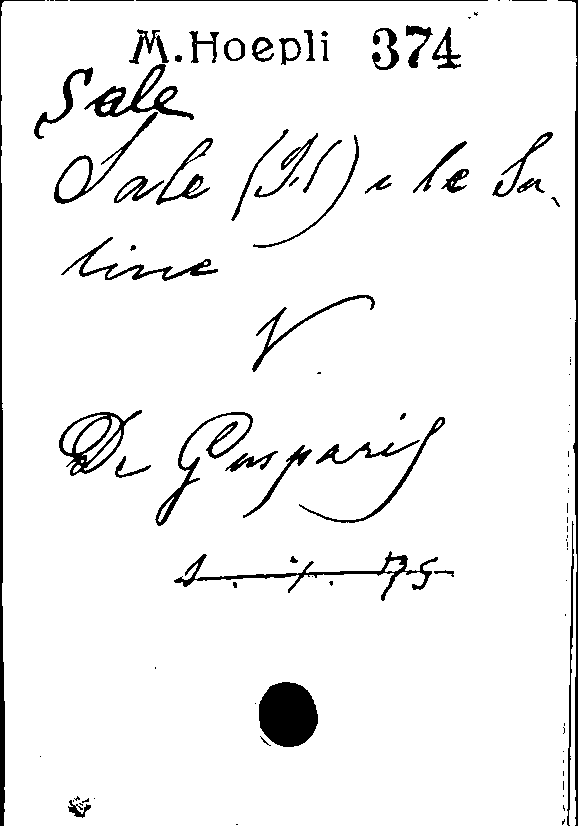 M.Hoepli 374
Sale
Sale (Il) e le Sa-
line
V.
De Gasparis